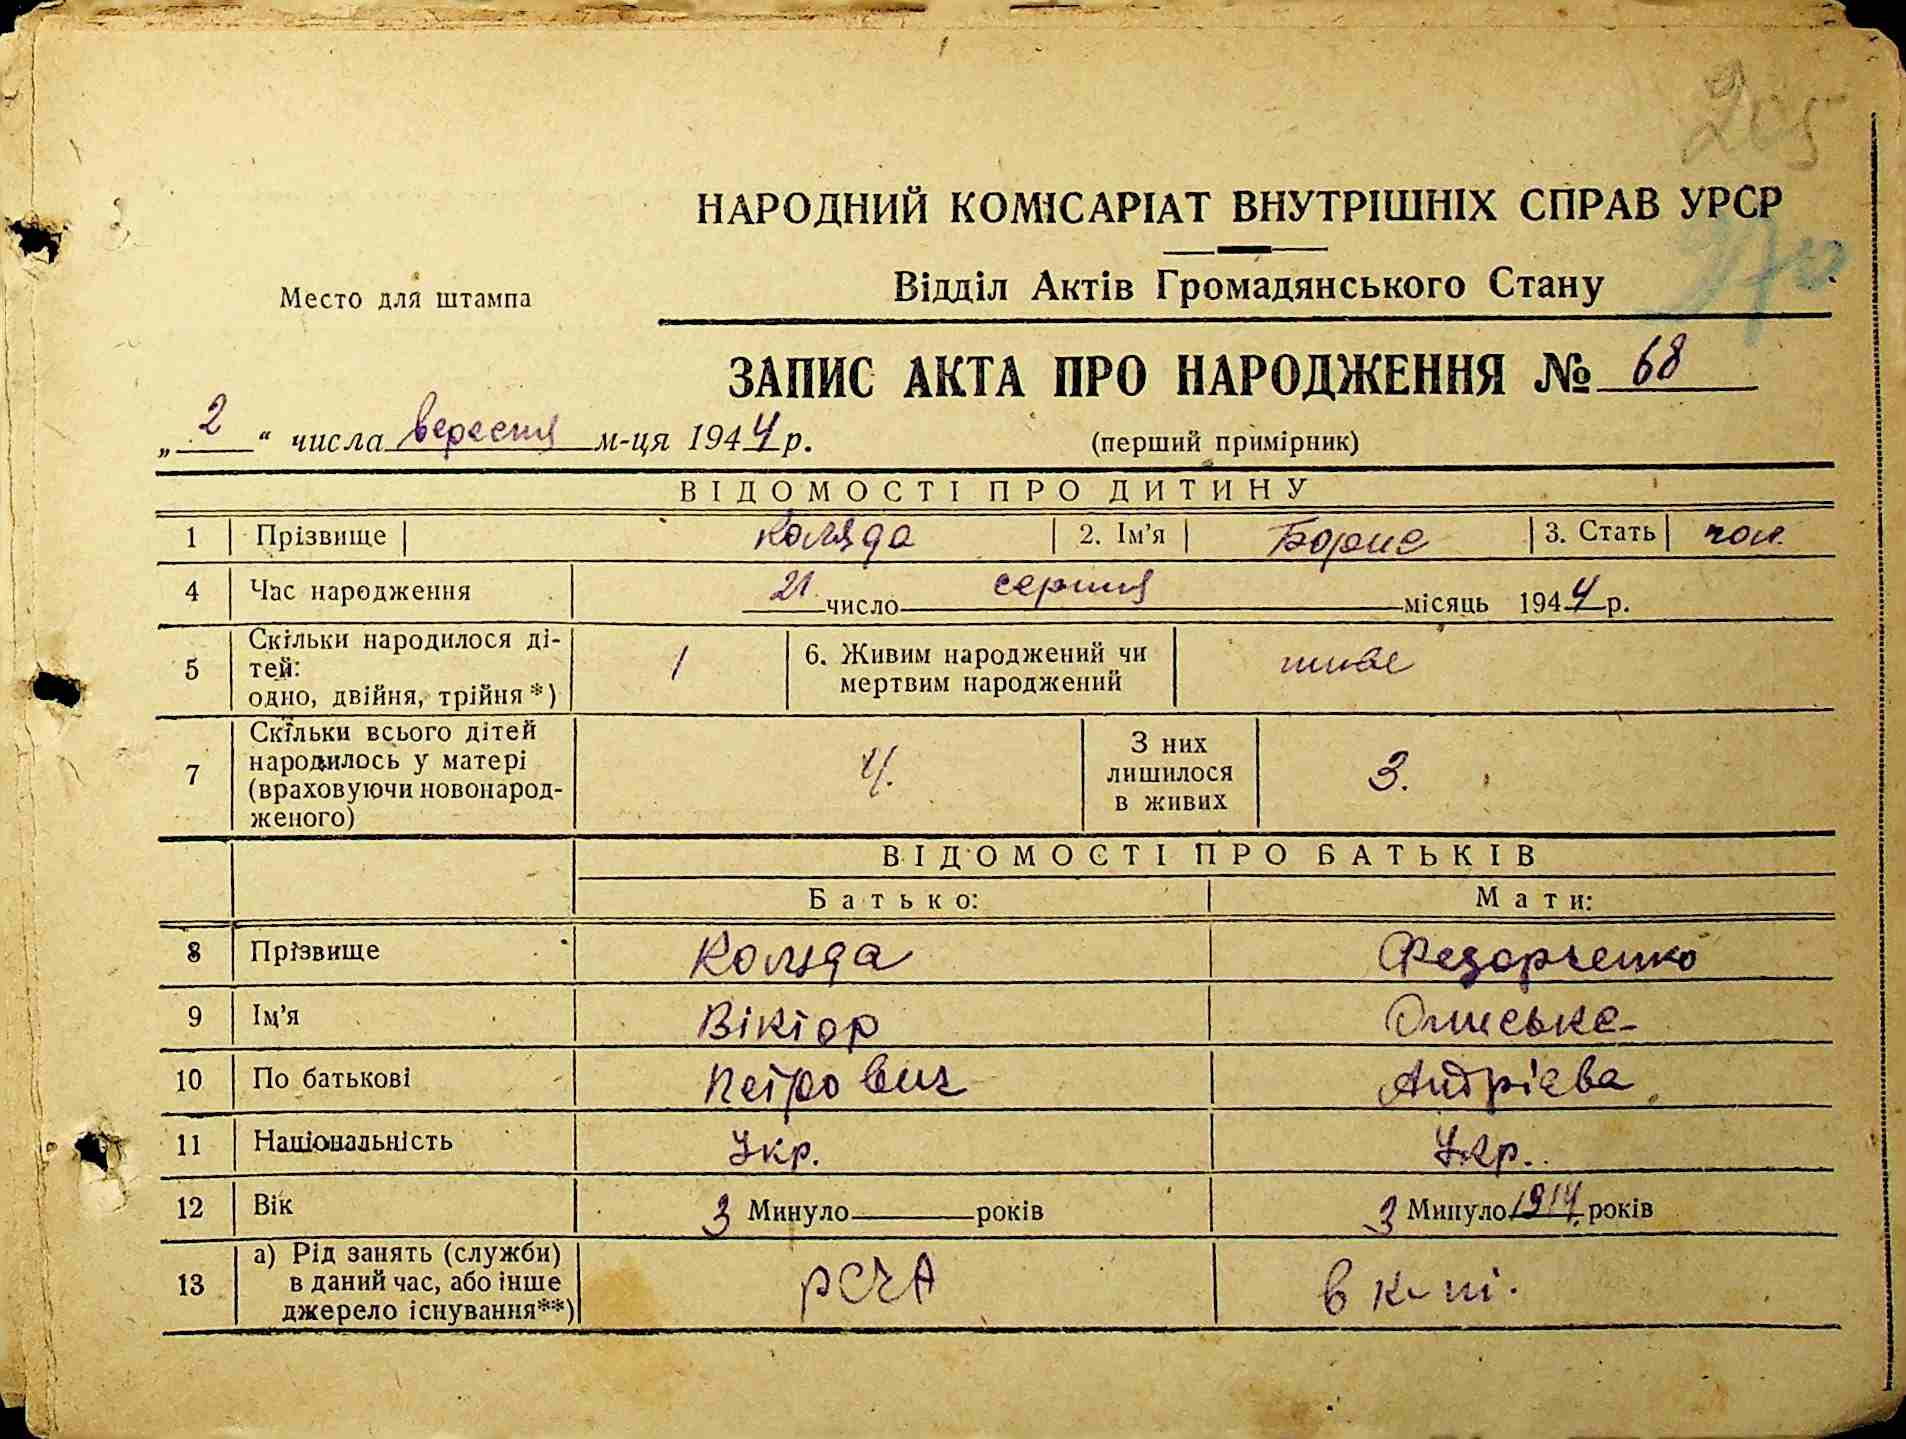 205
НАРОДНИЙ КОМІСАРІАТ ВНУТРІШНІХ СПРАВ УРСР
Место для штампа
Відділ Актів Громадянського Стану
ЗАПИС АКТА ПРО НАРОДЖЕННЯ № 68
„2“ числа вересня м-ця 1944 р.
(перший примірник)
ВІДОМОСТІ ПРО ДИТИНУ
1 Прізвище Коляда 2. Ім'я Борис 3. Стать чол.
4 Час народження 21 число серпня місяць 1944 р.
5 Скільки народилося ді-
тей:
одно, двійня, трійня *) 1
6. Живим народжений чи
мертвим народжений живе
7 Скільки всього дітей
народилось у матері
(враховуючи новонарод-
женого) 4.
З них
лишилося
в живих 3.
ВІДОМОСТІ ПРО БАТЬКІВ
Батько: Мати:
8 Прізвище Коляда Федорченко
9 Ім'я Віктор
10 По батькові Петрович Андрієва
11 Національність Укр. Укр.
12 Вік З Минуло років З Минуло 1914 років
13 а) Рід занять (служби)
в даний час, або інше
джерело існування**) РСЧА в к-пі.